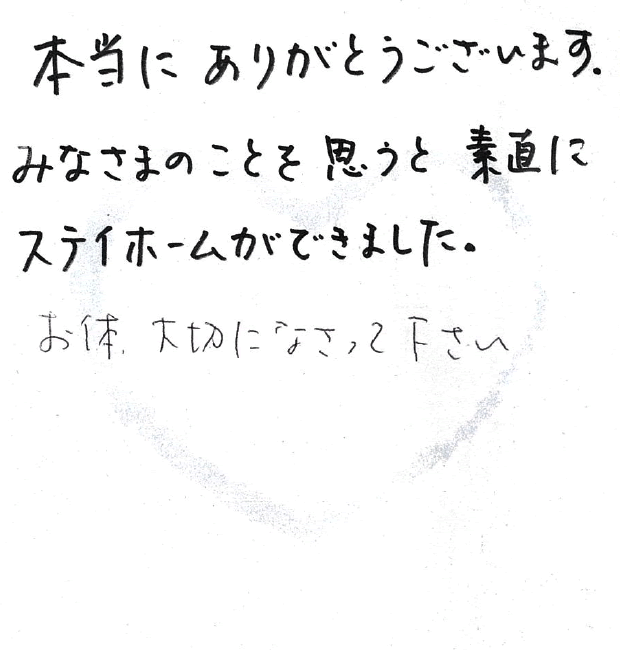 本当に ありがとうございます.
みなさまのことを 思うと 素直に
ステイホームができました。
お体、大切になさって下さい